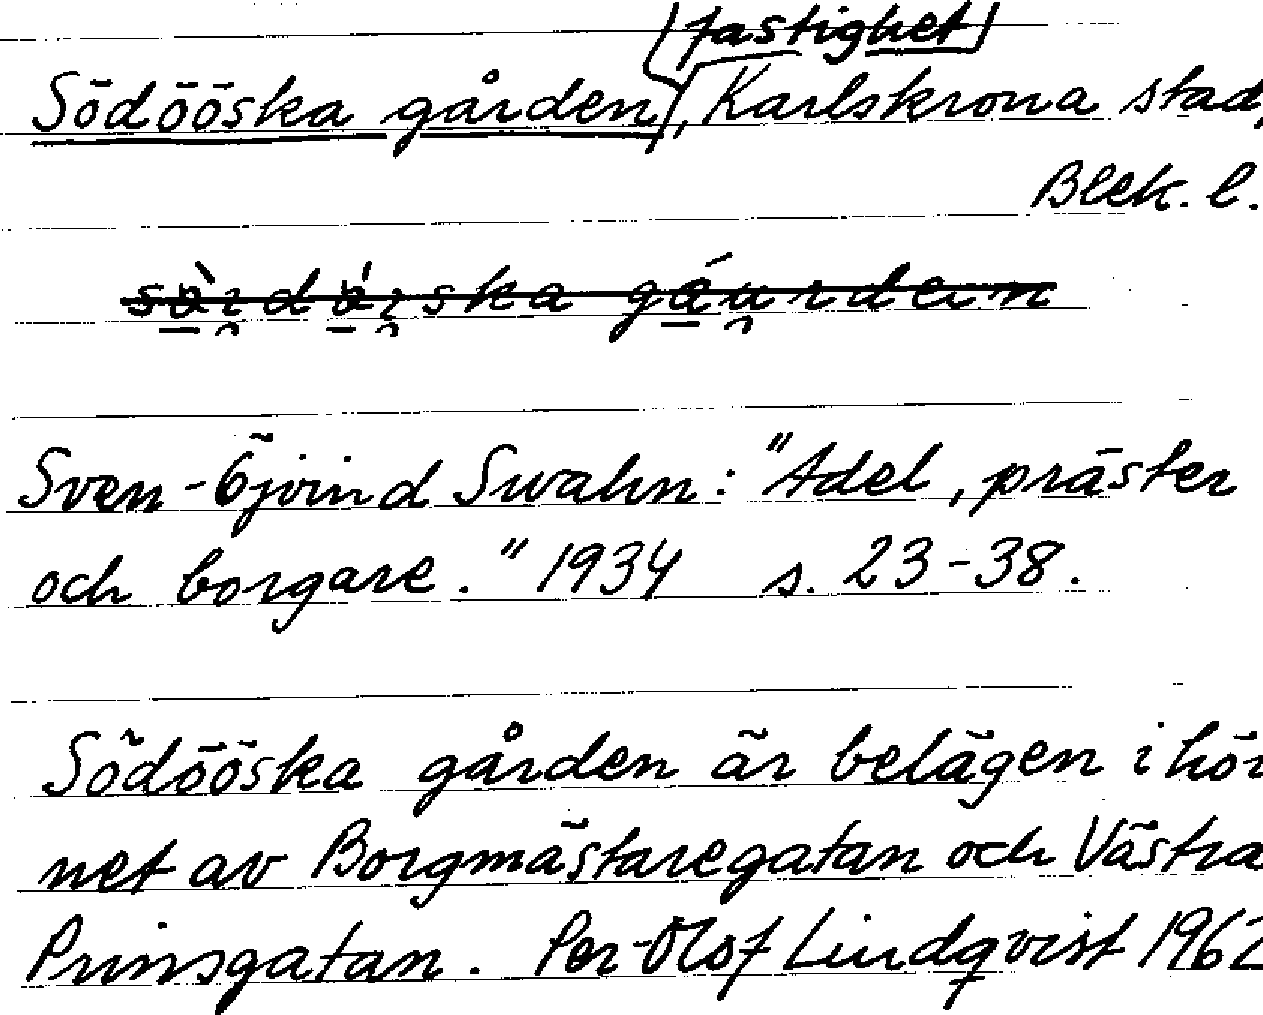 (fastighet)
Södööska gården, Karlskrona stad,
Blek. l.
Sven-Öjvind Swahn: "Adel, präster
och borgare." 1934 s. 23-38.
Södööska gården är belägen i hör
net av Borgmästaregatan och Västra
Prinsgatan. Per-Olof Lindqvist 1962